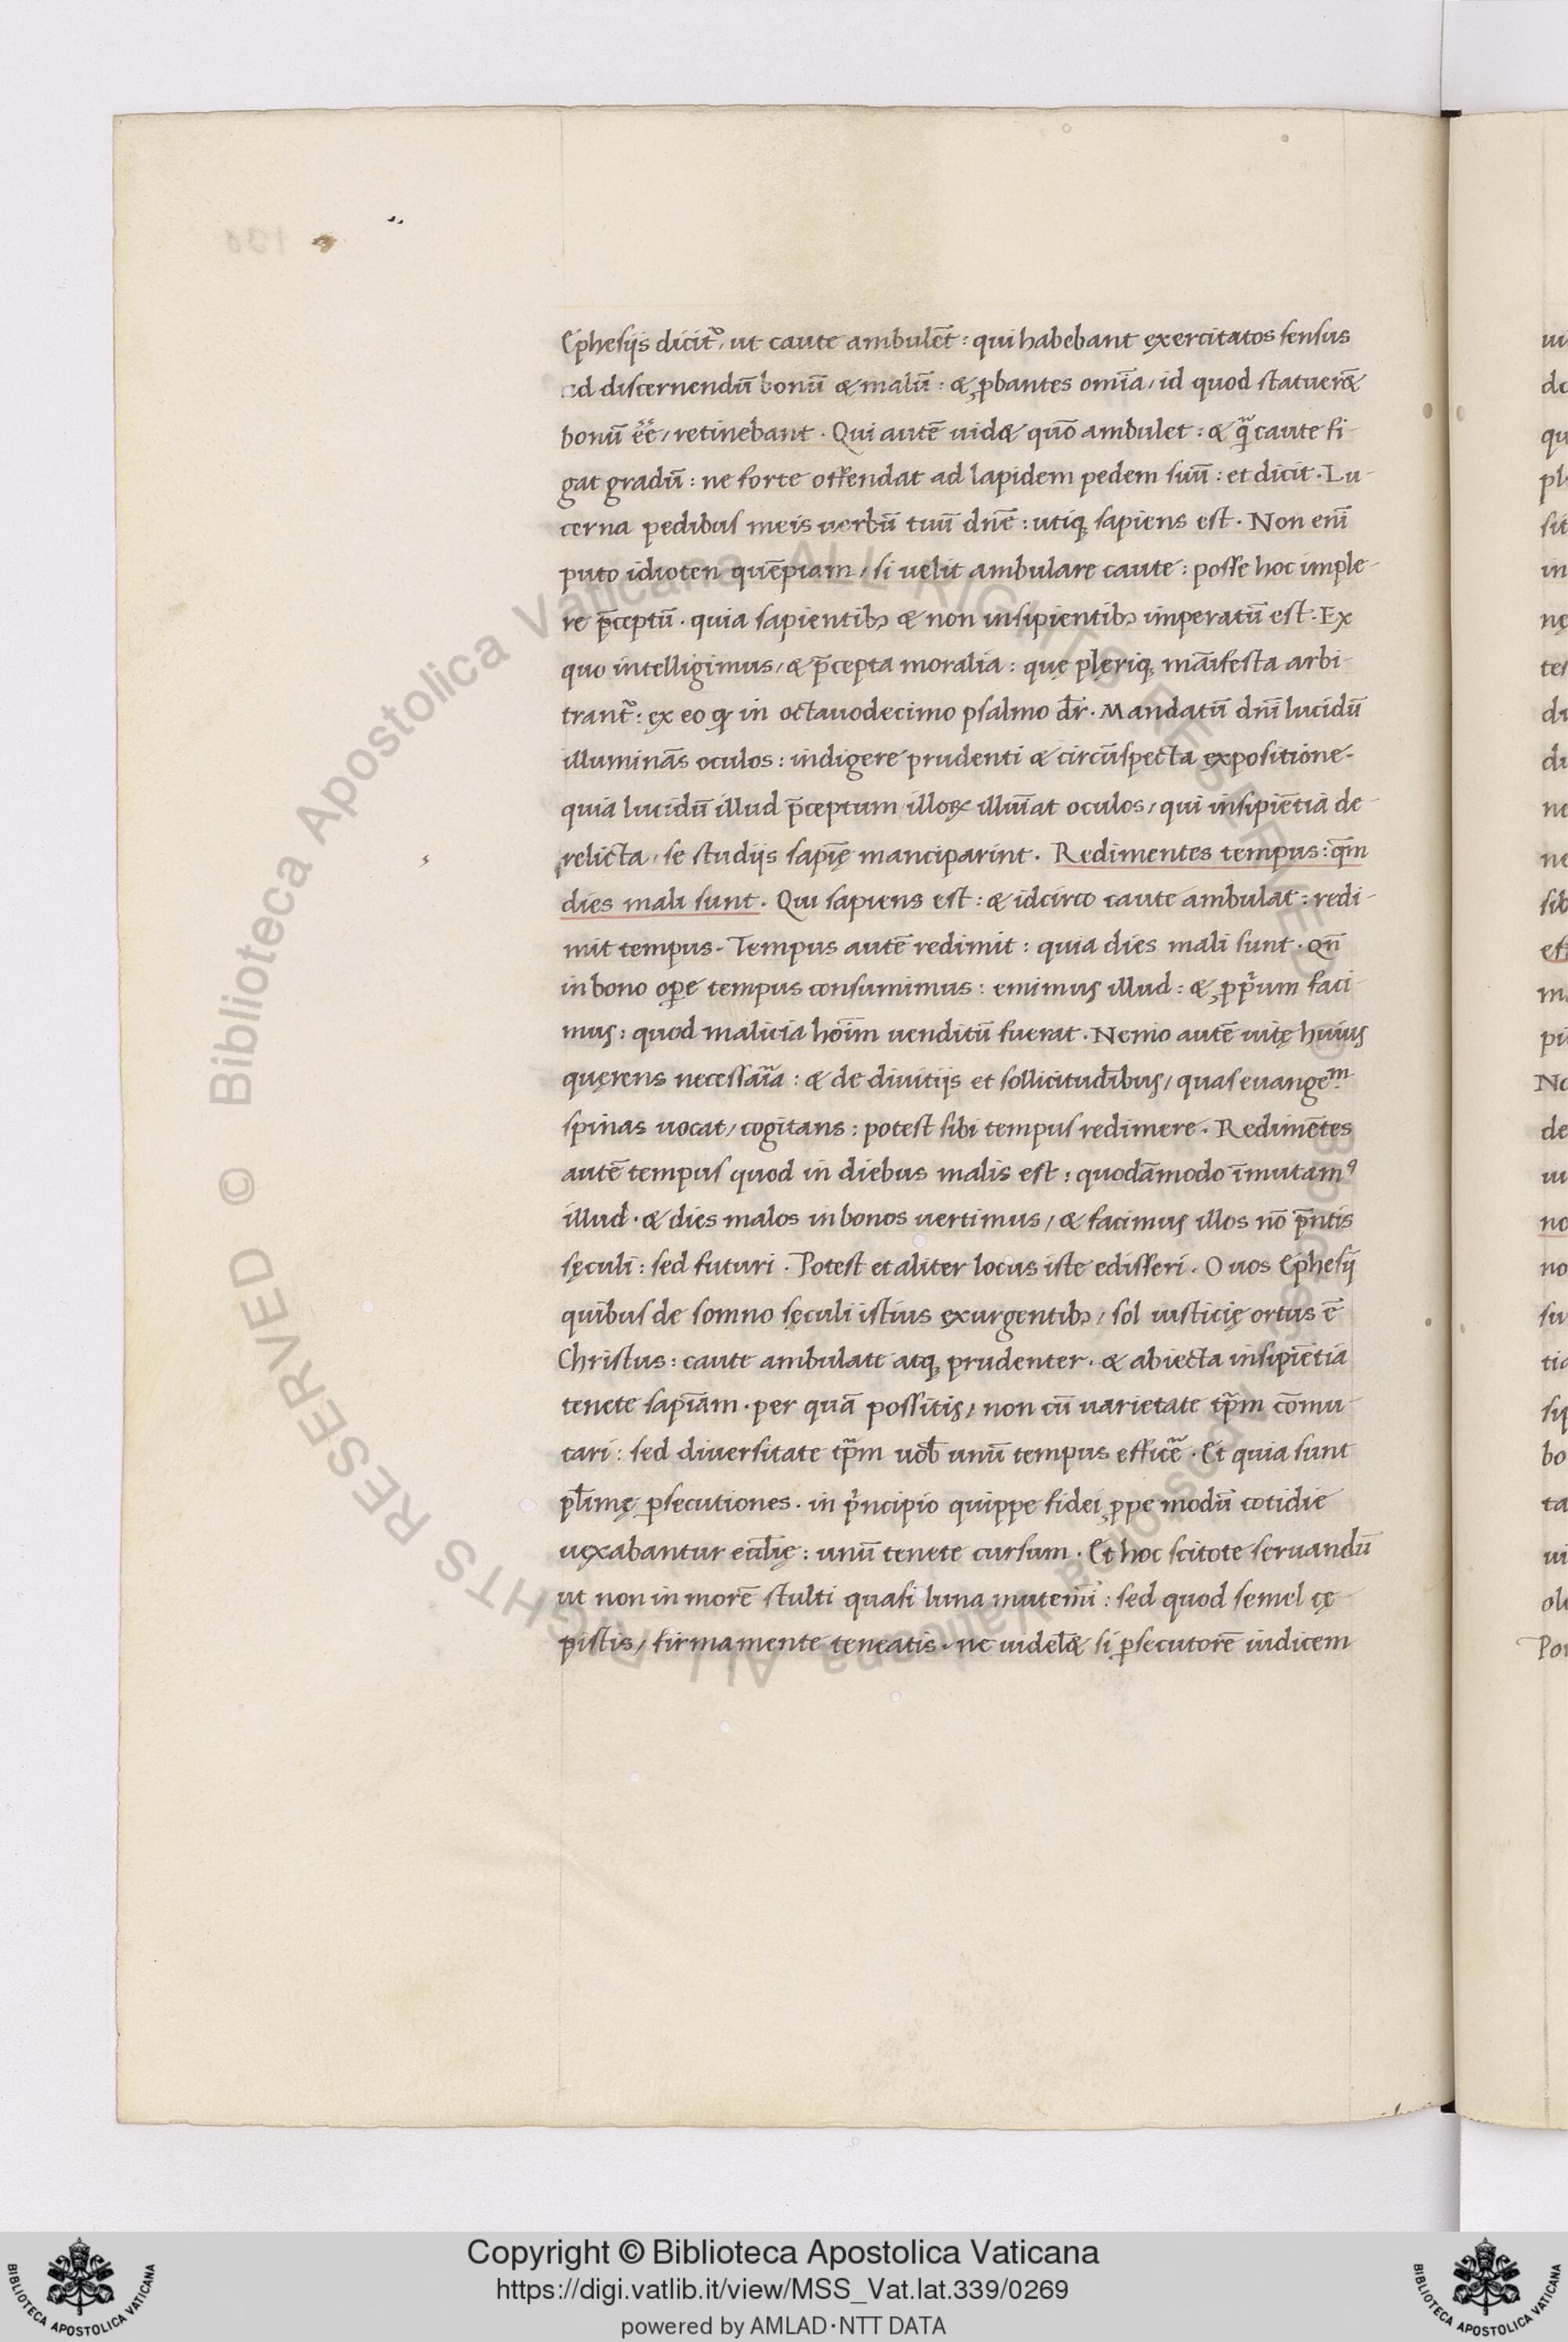 Ephesijs dicit᷑, ut caute ambulēt: qui habebant exercitatos sensus
ad discernendū bonū & malū: & ꝓbantes omīa, id quod statuer&
bonū eē̄, retinebant. Qui autē uid& quō ambulet: & q̃ caute fi-
gat gradū: ne forte offendat ad lapidem pedem suū: et dicit. Lu-
cerna pedibus meis verbū tuū dn̄e: utiqꝫ sapiens est. Non enī
puto idioten quēpiam, si uelit ambulare caute: posse hoc imple-
re p̄ceptū. quia sapientibꝫ & non insipientibꝫ imperatū est. Ex
quo intelligimus, & p̄cepta moralia: quę plęriqꝫ māifesta arbi-
trant᷑: ęx eo ꝙ in octauodecimo psalmo dr̄. Mandatū dn̄i lucidū
illuminās oculos: indigere prudenti & circūspecta ęxpositione.
quia lucidū illud p̄ceptum illoꝝ illuīat oculos, qui insipiētia de-
relicta, se studijs sapię̄ manciparint. Redimentes tempus: qm̄
dies mali sunt. Qui sapiens est: & idcirco caute ambulat: redi-
mit tempus. Tempus autē redimit: quia dies mali sunt. Qn̄
in bono oꝑe tempus consumimus: emimus illud: & ꝓpriūm faci-
mus: quod malicia hoīm uenditū fuerat. Nemo autē uitę huius
quęrens necessaīa: & de diuitijs et sollicitudībus, quas euangeᵐ
spinas uocat, cogitans: potest sibi tempus redimere. Redimētes
autē tempus quod in diebus malis est: quodāmodo īmutamꝰ
illud. & dies malos in bonos uertimus, & facimus illos nō p̄ntis
sęculi: sed futuri. Potest et aliter locus iste edisseri. O uos Ephesij
quibus de somno sęculi istius ęxurgentibꝫ, sol iusticię ortus ē
Christus: caute ambulate atqꝫ prudenter. & abiecta insipiētia
tenete sapīam. per quā possitis, non cū uarietate tp̄m cōmu-
tari: sed diuersitate tp̄m uob̄ unū tempus efficē. Et quia sunt
pl̄imę ꝑsecutiones. in p̄ncipio quippe fidei ꝓpe modū cotidie
uęxabantur eccl̄ię: unū tenete cursum. Et hoc scitote seruandū
ut non in morē stulti quasi luna mutemī: sed quod semel cę-
pistis, firma mente teneatis. ne uidel& si ꝑsecutorē iudicem
Copyright © Biblioteca Apostolica Vaticana
https://digi.vatlib.it/view/MSS_Vat.lat.339/0269
powered by AMLAD·NTT DATA